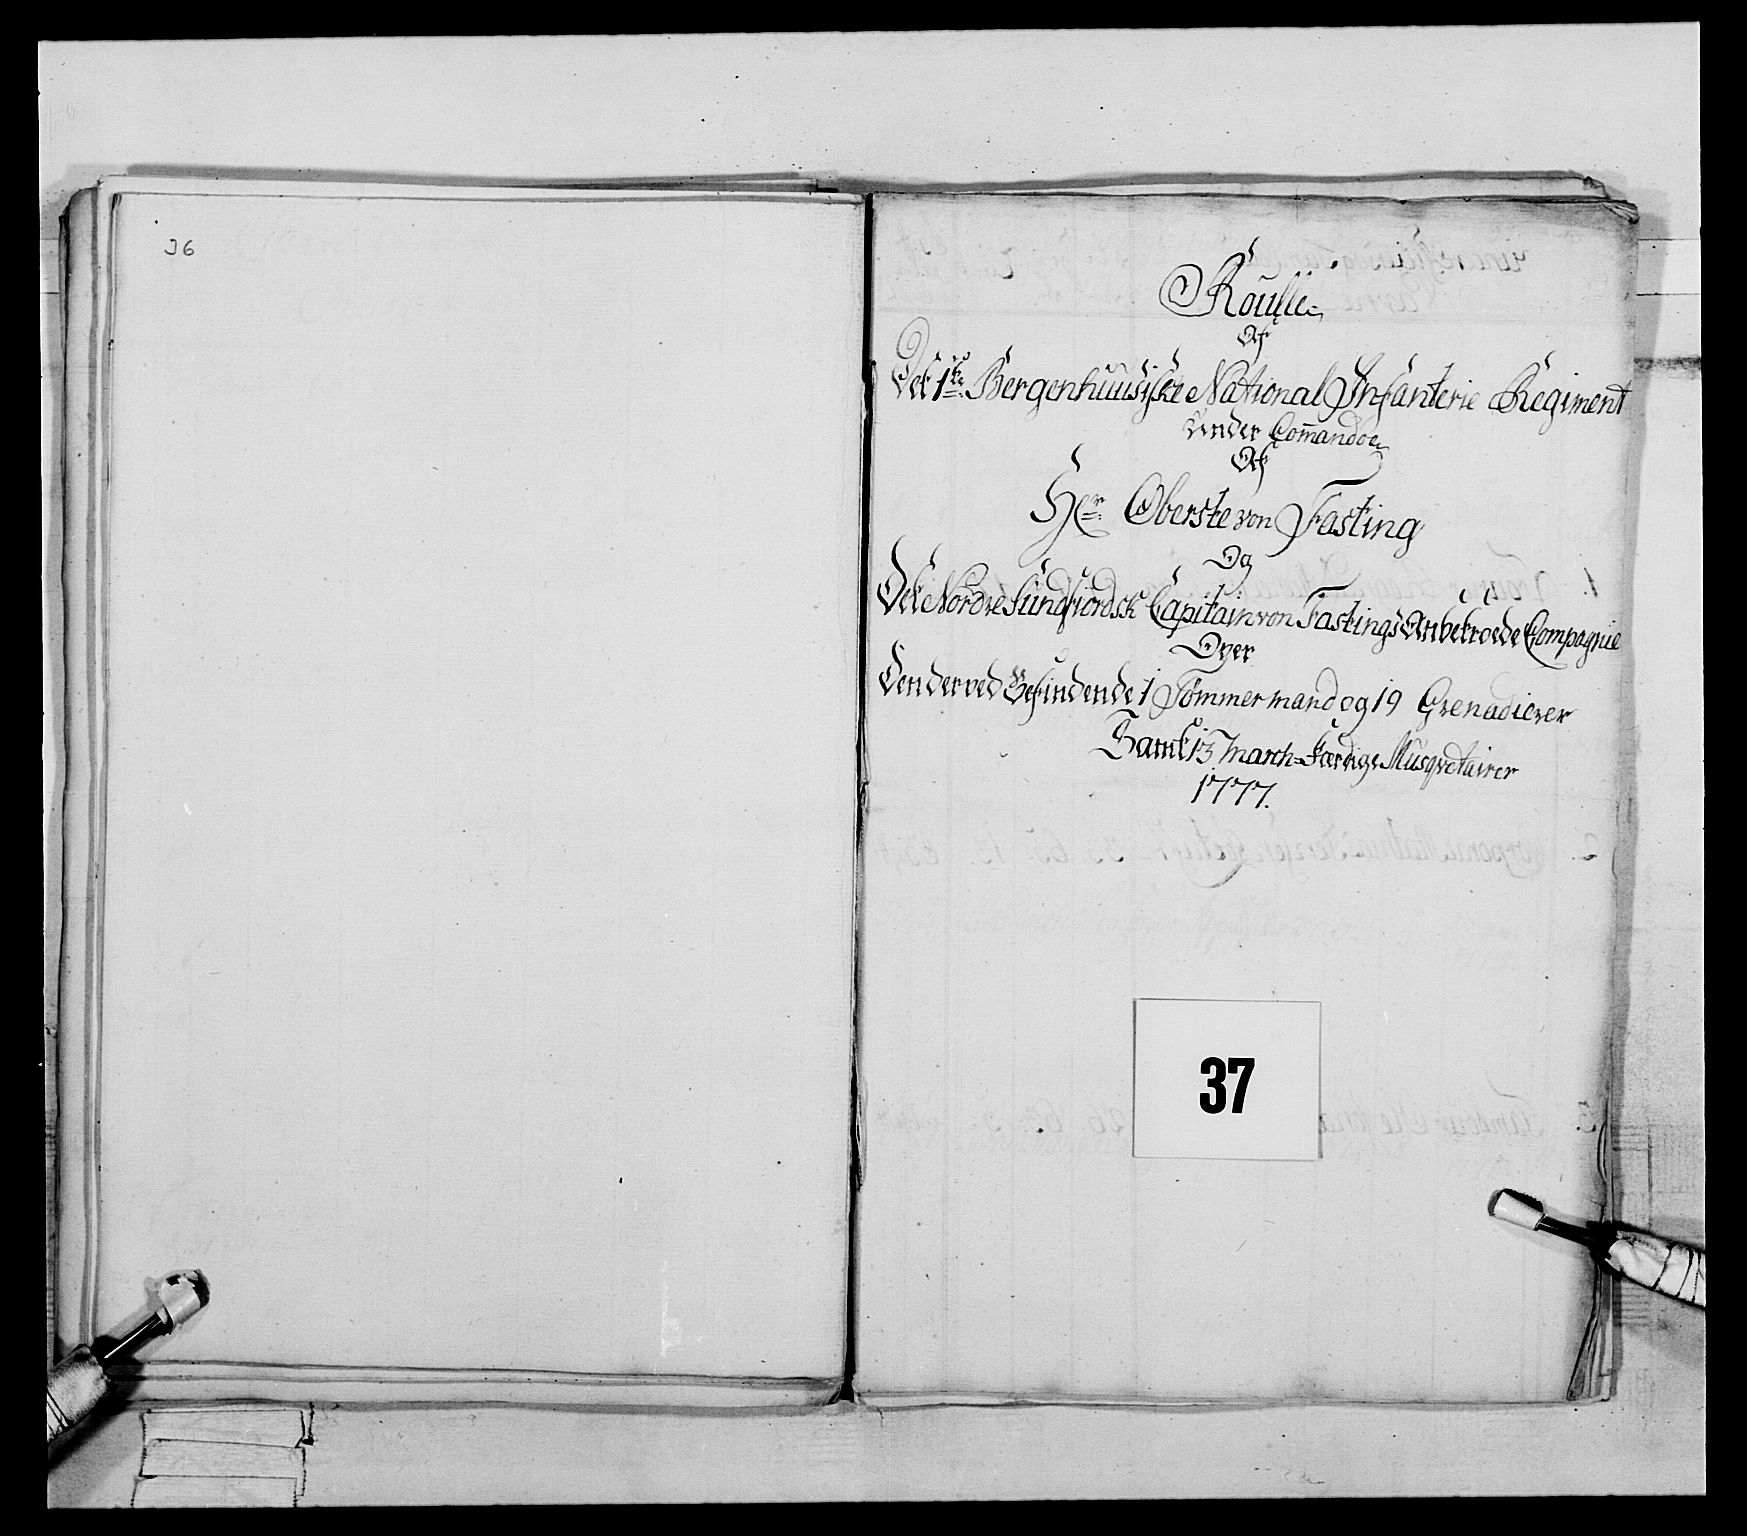 36
Roulle
Af
Det 1te Bergenhuusiske National Infanterie Regiment
Under Com̄andoe
Af
Her Oberste von Fasting
Og
Det Nordre Sundfiordsk Capitain von Fastings Anbetroede Compagnie
Over
Den derved Befindende 1 Tømmermand og 19 Grenadierer
Samt 13 March-Færdige Musqvetairer
1777.
37